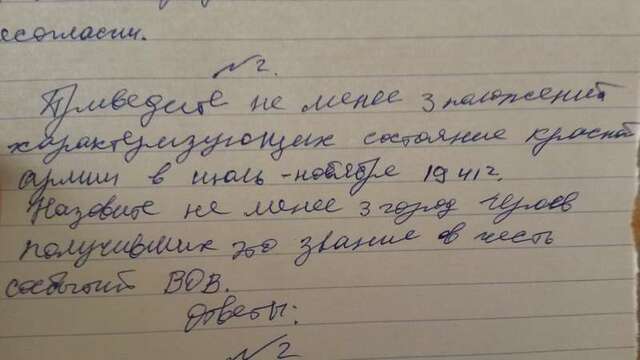 есогласии.
№2.
Приведите не менее 3 положений
характеризующих состояние красной
армии в июль-ноябре 1941 г.
Назовите не менее 3 город героев
получивших это звание в честь
событий ВОВ.
Ответы:
№2